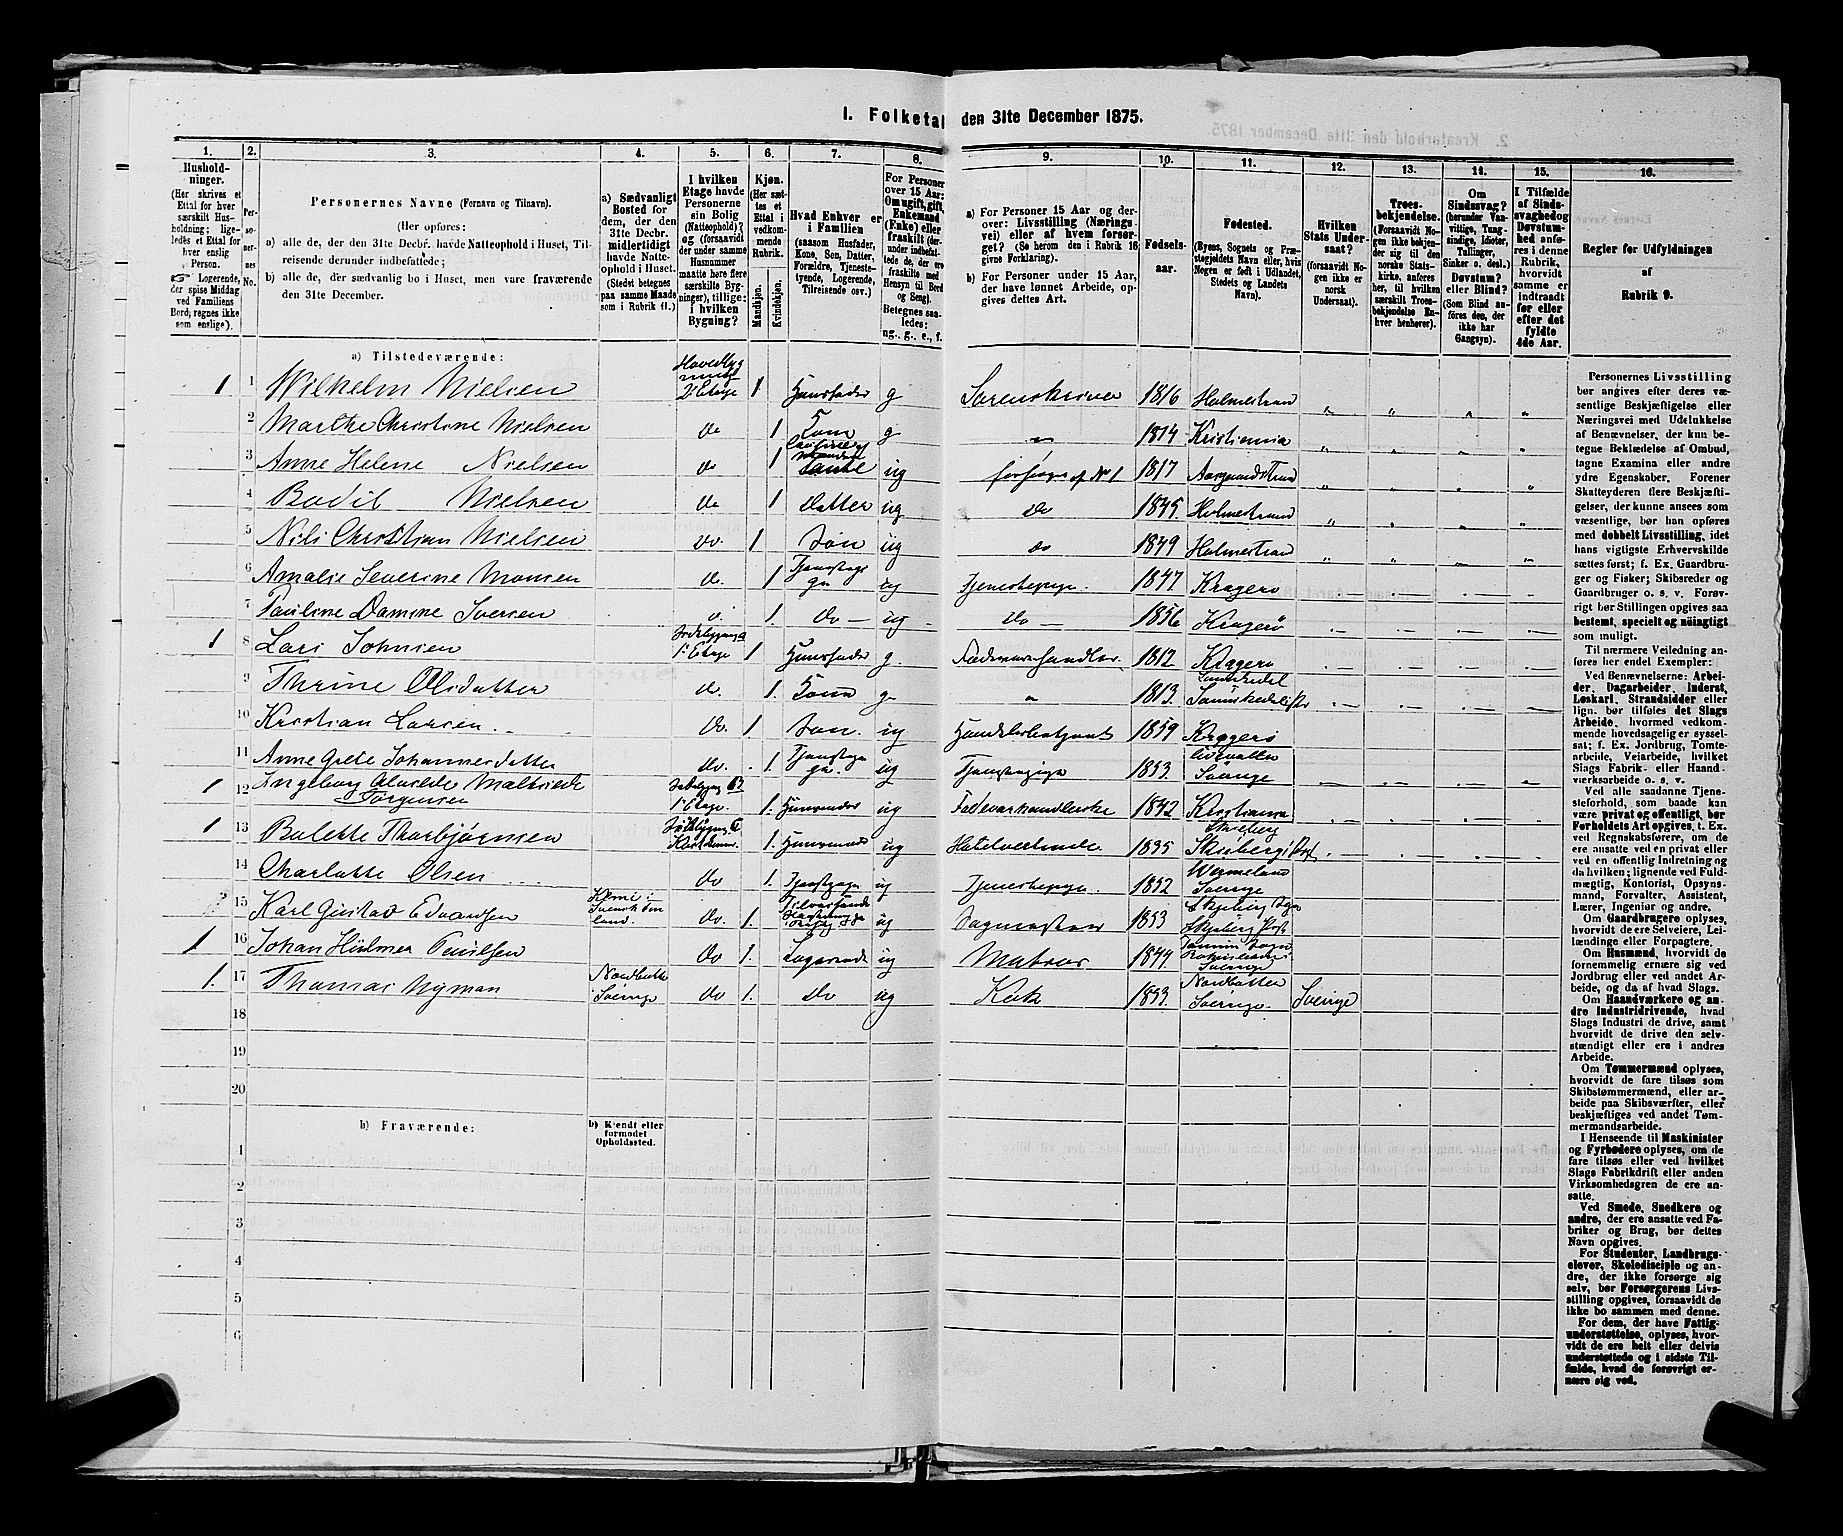 1. Folketal den 31te December 1875.
1. 2. 3. 4. 5. 6. 7. 8. 9. 10. 11. 12. 13. 14. 15. 16.
Hushold-
ninger.
(Her skrives et
Ettal for hver
særskilt Hus-
holdning; lige-
ledes et Ettal for
hver enslig
Person.
☞ Logerende,
der spise Middag
ved Familiens
Bord, regnes ikke
som enslige).
Per-
so-
ner-
nes
No.
Personernes Navne (Fornavn og Tilnavn).
(Her opføres:
a) alle de, der den 31te Decbr. havde Natteophold i Huset, Til-
reisende derunder indbefattede;
b) alle de, der sædvanlig bo i Huset, men vare fraværende
den 31te December.
a) Sædvanligt
Bosted for
dem, der den
31te Decbr.
midlertidigt
havde Natte-
ophold i Huset.
(Stedet betegnes
paa samme Maade
som i Rubrik 11.)
I hvilken
Etage havde
Personerne
sin Bolig
(Natteophold)?
og (forsaavidt
der under samme
Husnummer
maatte høre flere
særskilte Byg-
ninger), tillige:
i hvilken
Bygning?
Kjøn.
(Her sæt-
tes et
Ettal i
vedkom-
mende
Rubrik.
Mandkjøn.
Kvindekjøn.
Hvad Enhver er
i Familien
(saasom Husfader,
Kone, Søn, Datter,
Forældre, Tjeneste-
tyende, Logerende,
Tilreisende osv.)
For Personer
over 15 Aar:
Om ugift, gift,
Enkemand
(Enke) eller
fraskilt (der-
under indbefat-
tede de, der ere
fraskilte med
Hensyn til Bord
og Seng).
Betegnes saa-
ledes:
ug., g., e., f.
a) For Personer 15 Aar og der-
over: Livsstilling (Nærings-
vei) eller af hvem forsør-
get? (Se herom den i Rubrik 16
givne Forklaring).
b) For Personer under 15 Aar,
der have lønnet Arbeide, op-
gives dettes Art.
Fødsels-
aar.
Fødested.
(Byens, Sognets og Præ-
stegjeldets Navn eller, hvis
Nogen er født i Udlandet,
Stedets og Landets
Navn).
Hvilken
Stats Under-
saat?
(forsaavidt No-
gen ikke er
norsk
Undersaat).
Troes-
bekjendelse.
(Forsaavidt No-
gen ikke bekjen-
der sig til den
norske Stats-
kirke, anføres
her, til hvilken
særskilt Troes-
bekjendelse En-
hver henhører).
Om
Sindssvag?
(herunder Van-
vittige, Tung-
sindige, Idioter,
Tullinger,
Sinker o. desl.)
Døvstum?
eller Blind?
(Som Blind an-
føres den, der
ikke har
Gangsyn).
I Tilfælde
af Sinds-
svaghed og
Døvstum-
hed anfø-
res i denne
Rubrik,
hvorvidt
samme er
indtraadt
før eller
efter det
fyldte
4de Aar.
Regler for Udfyldningen
af
Rubrik 9.
a) Tilstedeværende:
1 1 Wilhelm Nielsen 2 Etage 1 Huusfader g Sorenskriver 1816 Holmestrand
2 Marthe Christine Nielsen do 1 Kone g 1814 Kristiania
3 Anne Helene Nielsen do 1 Tante ug forsørges af No 1 1817 Aasgaardstrand
4 Bodil Nielsen do 1 datter ug do 1845 Holmestrand
5 Nils Christian Nielsen do. 1 søn ug do 1849 Holmestrand
6 Amalie Severine Monsen do. 1 ug Tjenestepige. 1847 Kragerø
7 Pauline Damine Iversen 1. do ug do 1856 Kragerø
1 8 Lars Johnsen 1e Etage 1 Huusfader g. 1812 Kragerø
9 Thrine Olsdatter do. 1. Kone g 1813. Sannikedal
10 Kristian Larsen do. 1 søn. ug 1859 Kragerø
11 Anne Grete Johannesdatter do. 1. ug 1853. Sverige
1 12 Ingeborg Mathilde 1e Etage. 1. ug 1842 Kristiania
Jørgensen
1 13 Bolette Thorbjørnsen 1. ug 1835 Skiberg
14 Charlotte Olsen do 1. ug Tjenestepige. 1852 Wermeland Sverige
15 Karl Gustav Edvardsen do. 1. ug 1853
1 16 Johan Hilmer do 1. Logerende ug Matros 1844 Sverige
1. 17 Thomas Nyman Sverige do 1. do ug Kok 1853. Sverige. Sverige
18
19
20
b) Fraværende:
b) Kjendt eller
formodet
Opholdssted.
1
2
3
4
5
6
Personernes Livsstilling
bør angives efter deres væ-
sentlige Beskjæftigelse eller
Næringsvei med Udelukkelse
af Benævnelser, der kun be-
tegne Beklædelse af Ombud,
tagne Examina eller andre
ydre Egenskaber. Forener
Skatteyderen flere Beskjæfti-
gelser, der kunne ansees som
væsentlige, bør han opføres
med dobbelt Livsstilling, idet
hans vigtigste Erhvervskilde
sættes først; f. Ex. Gaardbru-
ger og Fisker; Skibsreder og
Gaardbruger o. s. v. Forøv-
rigt bør Stillingen opgives saa
bestemt, specielt og nøiagtigt
som muligt.
Til nærmere Veiledning an-
føres her endel Exempler:
Ved Benævnelserne: Arbei-
der, Dagarbeider, Inderst,
Løskarl, Strandsidder eller
lign. bør tilføies det Slags
Arbeide, hvormed vedkom-
mende hovedsagelig er syssel-
sat; f. Ex. Jordbrug, Tomte-
arbeide, Veiarbeide, hvilket
Slags Fabrik- eller Haand-
værksarbeide o. s. v.
Ved alle saadanne Tjene-
steforhold, som baade kan
være privat og offentligt, bør
Forholdets Art opgives, t. Ex.
ved Regnskabsførere, om de
ere ansatte ved en privat eller
ved en offentlig Indretning og
da hvilken; lignende ved Fuld-
mægtig, Kontorist, Opsyns-
mand, Forvalter, Assistent,
Lærer, Ingeniør og andre.
Om Gaardbrugere oplyses,
hvorvidt de ere Selveiere, Lei-
lændinge eller Forpagtere.
Om Husmænd, hvorvidt de
fornemmelig ernære sig ved
Jordbrug eller ved andet Ar-
beide, og da af hvad Slags.
Om Haandværkere og an-
dre Industridrivende, hvad
Slags Industri de drive, samt
hvorvidt de drive den selv-
stændigt eller ere i andres
Arbeide.
Om Tømmermænd oplyses,
hvorvidt de fare tilsøs som
Skibstømmermænd, eller ar-
beide paa Skibsværfter, eller
beskjæftiges ved andet Tøm-
mermandsarbeide.
I Henseende til Maskinister
og Fyrbødere oplyses, om de
fare tilsøs eller ved hvilket
Slags Fabrikdrift eller anden
Virksomhedsgren de ere an-
satte.
Ved Smede, Snedkere og
andre, der ere ansatte ved Fa-
briker og Brug, bør dettes
Navn opgives.
For Studenter, Landbrugs-
elever, Skoledisciple og an-
dre, der ikke forsørge sig
selv, bør Forsørgerens Livs-
stilling opgives, forsaavidt de
ikke bo sammen med denne.
For dem, der have Fattig-
understøttelse, oplyses, hvor-
vidt de ere helt eller delvis
understøttede og i sidste Til-
fælde, hvad de forøvrigt er-
nære sig ved.